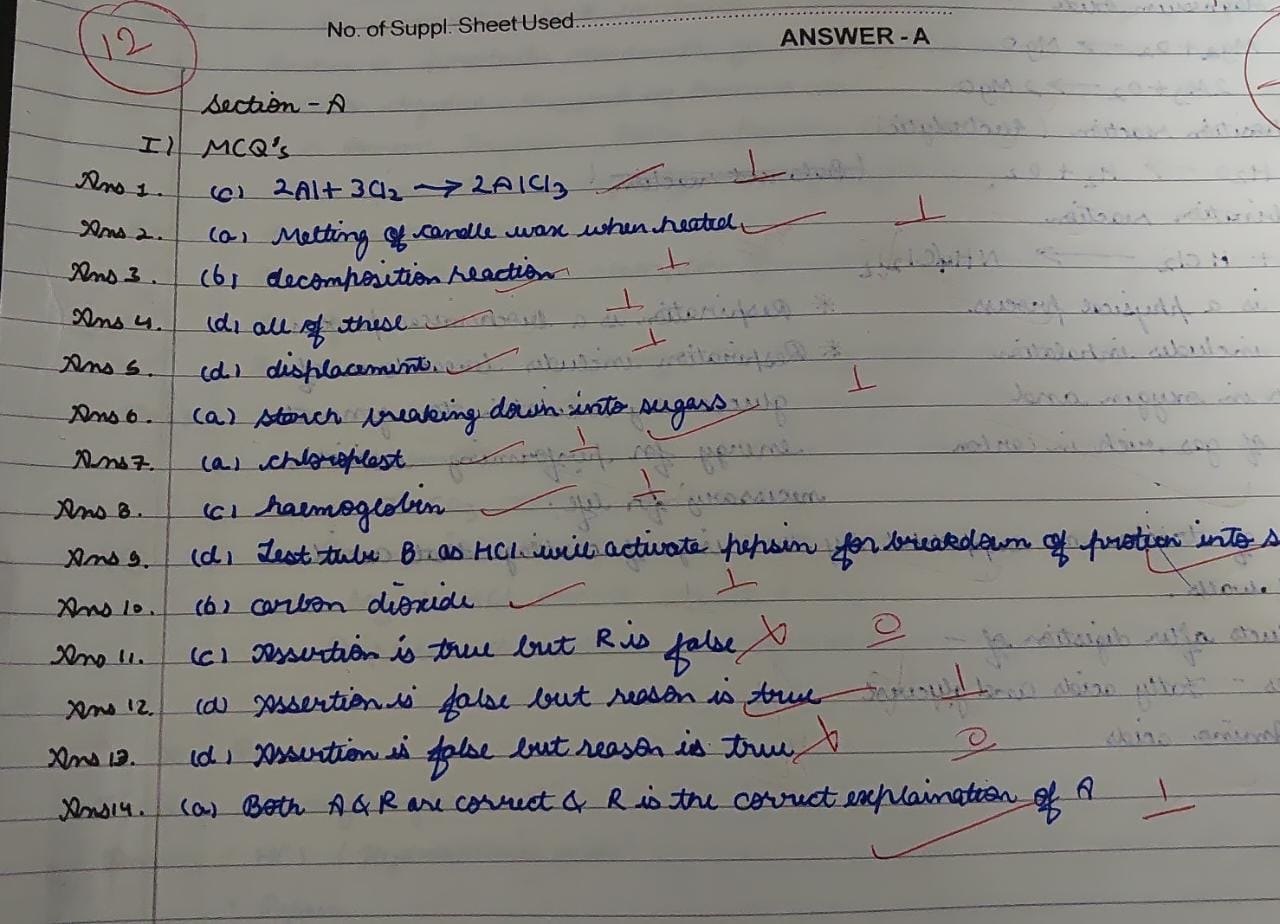 12
No. of Suppl. Sheet Used
ANSWER - A
Section - A
I) MCQ's
Ans 1. (c) 2Al + 3Cl2 → 2AlCl3 1
Ans 2. (a) Melting of candle wax when heated 1
Ans 3. (b) decomposition reaction 1
Ans 4. (d) all of these 1
Ans 5. (d) displacement. 1
Ans 6. (a) starch breaking down into sugars 1
Ans 7. (a) chloroplast 1
Ans 8. (c) haemoglobin 1
Ans 9. (d) Test tube B as HCl will activate pepsin for breakdown of protien into
Ans 10. (b) carbon dioxide 1
Ans 11. (c) Assertion is true but R is false 0
Ans 12. (d) Assertion is false but reason is true 1
Ans 13. (d) Assertion is false but reason is true 0
Ans 14. (a) Both A & R are correct & R is the correct explaination of A 1